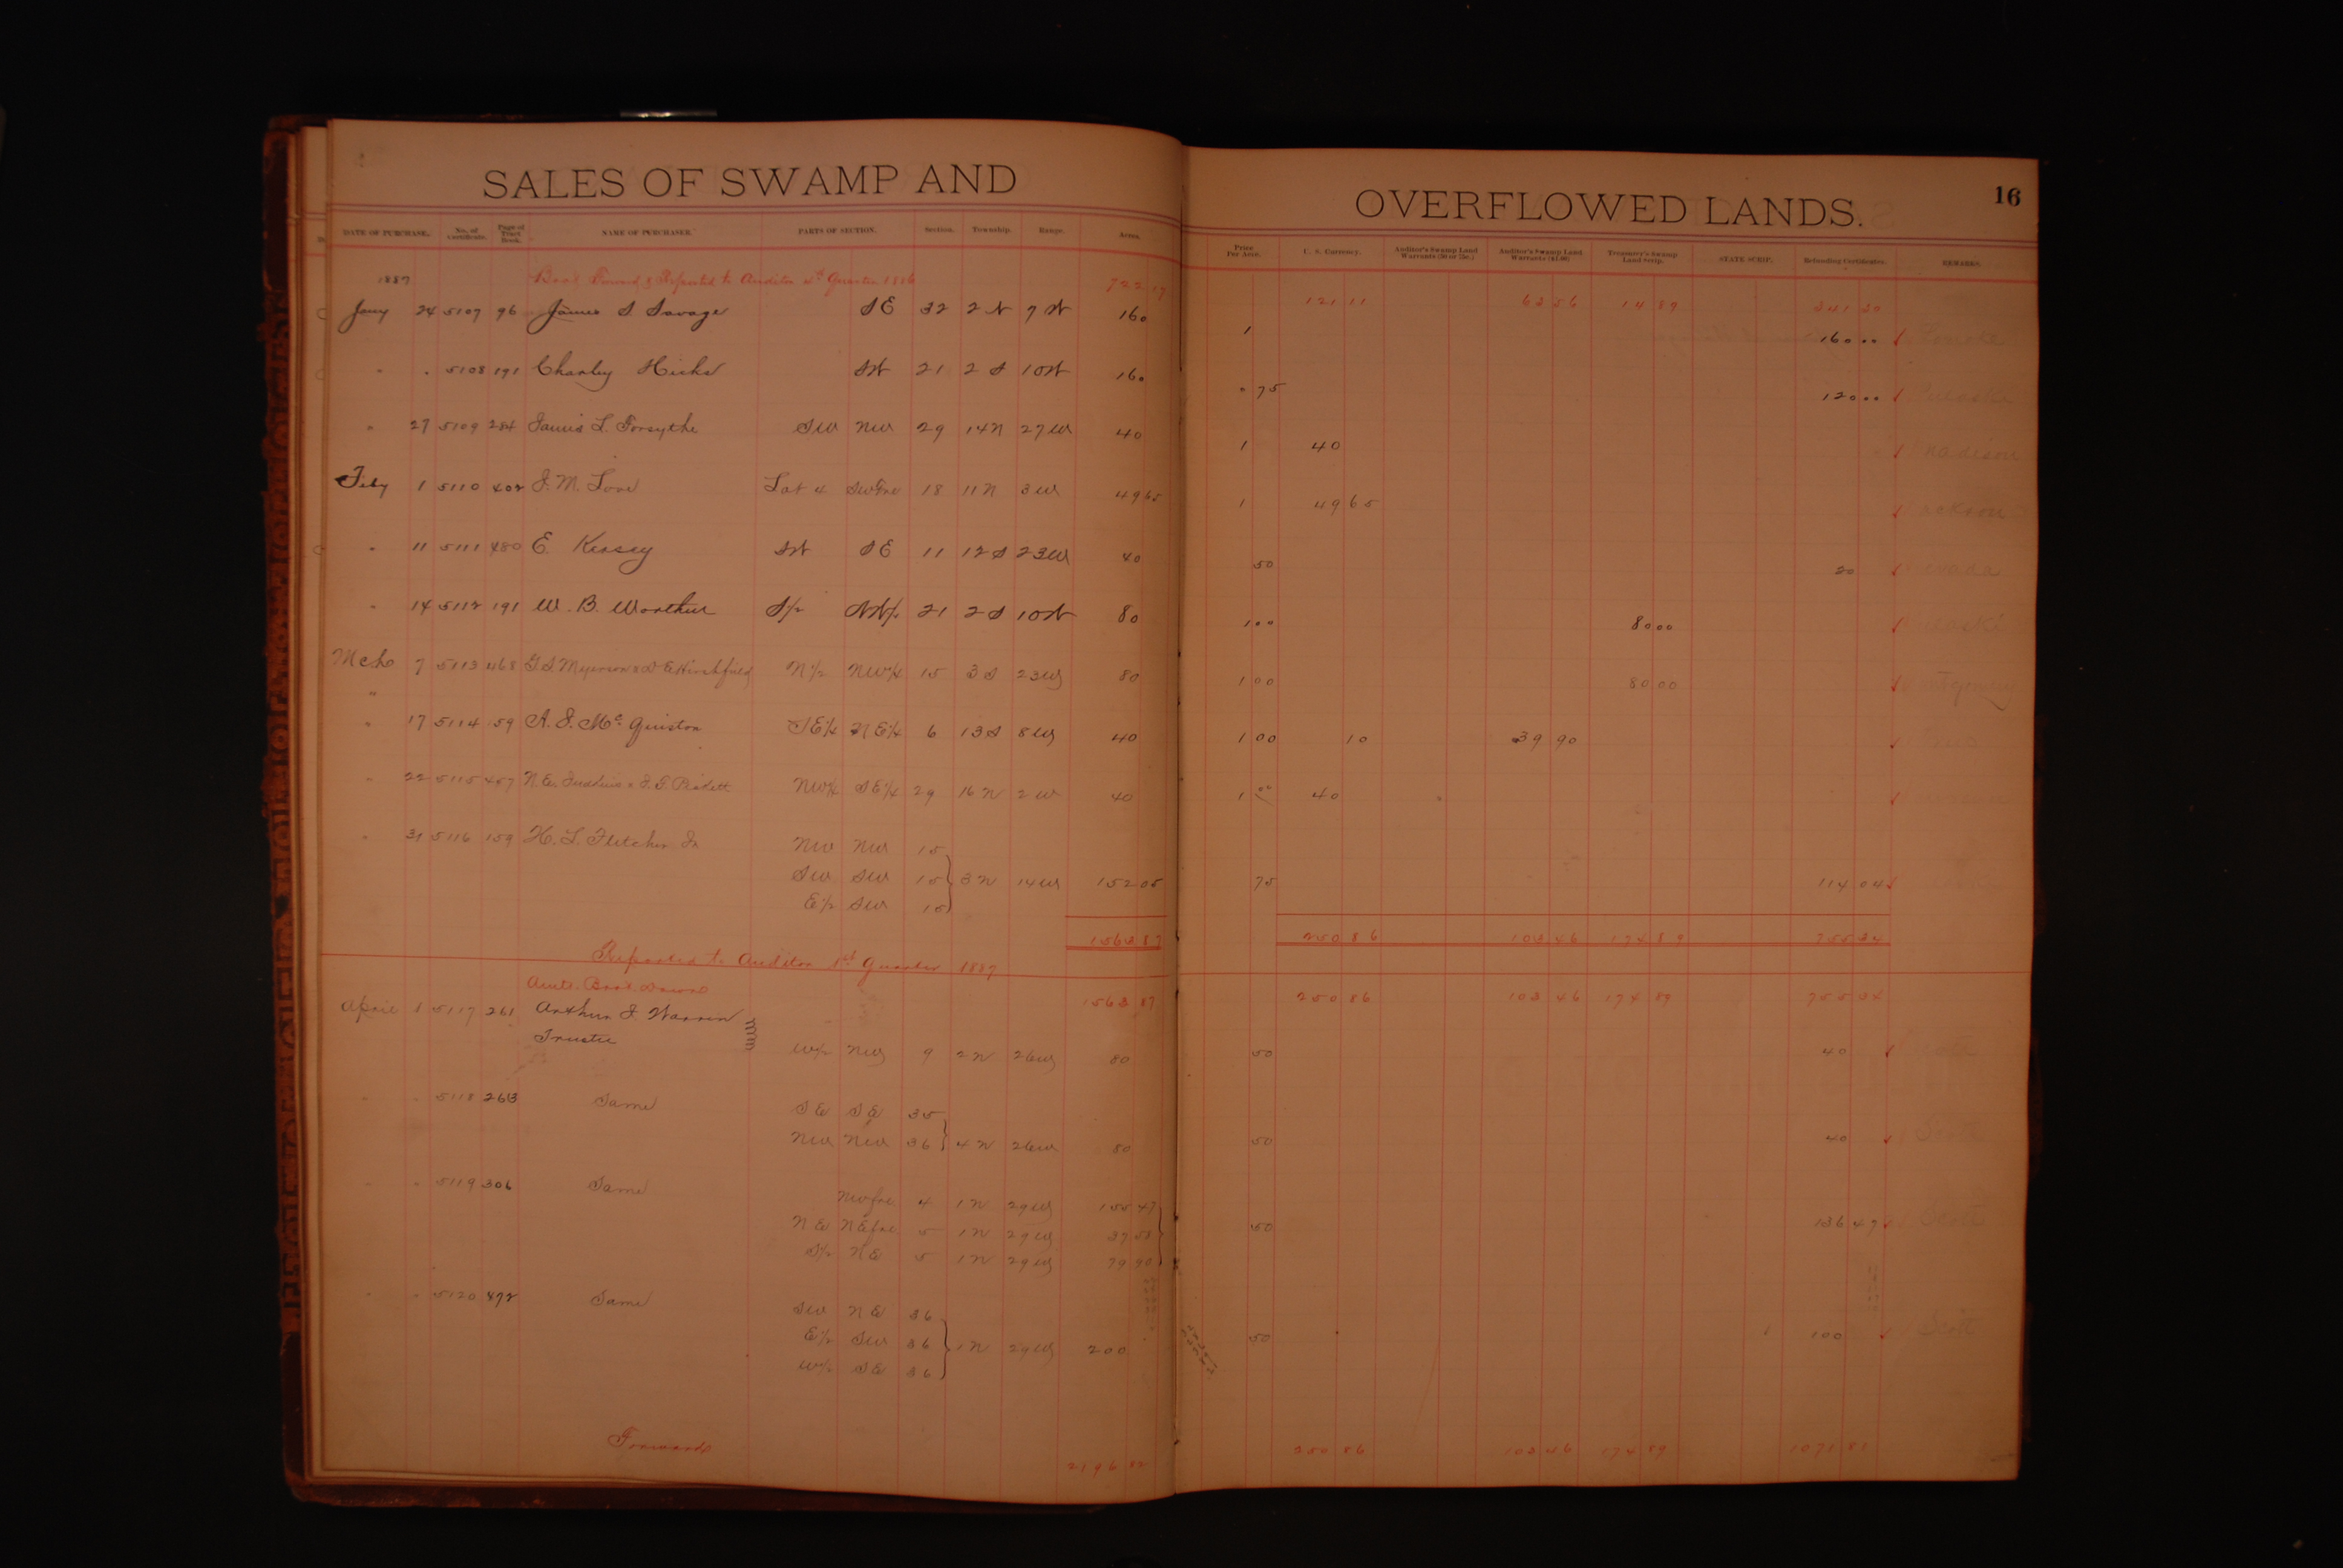 SALES OF SWAMP AND OVERFLOWED LANDS. 16
DATE OF PURCHASE. No. of Certificate. Page of Tract Book. NAME OF PURCHASER. PARTS OF SECTION. Section. Township. Range. Acres. Price Per Acre. U. S. Currency. Auditor's Swamp Land Warrants (50 or 75c.) Auditor's Swamp Land Warrants ($1.00) Treasurer's Swamp Land Scrip. STATE SCRIP. Refunding Certificates. REMARKS.
1887 Bro't Forward & Reported to Auditor 4th Quarter 1886 722 17 121 11 63 56 14 89 341 30
Jany 24 5107 96 James S Savage SE 32 2 N 7 W 160 1 160 00
" " 5108 191 Charley Hicks SW 21 2 S 10 W 160 " 75 120 00 Pulaski
" 27 5109 284 James L. Forsythe SW NW 29 14 N 27 W 40 1 40 Madison
Feby 1 5110 402 J. M. Love Lot 4 SW Frc 18 11 N 3 W 49 65 1 49 65 Jackson
" 11 5111 480 E. Kersey SW SE 11 12 S 23 W 40 50 20 Nevada
" 14 5112 191 W. B. Worthen S/2 NW/4 21 2 S 10 W 80 1 00 80 00 Pulaski
Mch 7 5113 468 N 1/2 NW 1/4 15 3 S 23 W 80 1 00 80 00 Montgomery
"
" 17 5114 59 A. J. Mc Quiston SE 1/4 NE 1/4 6 13 S 8 W 40 1 00 10 39 90
" 22 5115 457 NW 1/4 SE 1/4 29 16 N 2 W 40 1 00 40
" 31 5116 159 H. L. Fletcher Jr NW NW 15
SW SW 15 3 N 14 W 152 05 75 114 04
E 1/2 SW 15
1563 87 250 86 103 46 174 89 755 34
Reported to Auditor 1st Quarter 1887
Amts. Bro't. Down 1563 87 250 86 103 46 174 89 755 34
April 1 5117 261 Arthur J. Warren
Trustee W 1/2 NW 9 2 N 26 W 80 50 40 Scott
" " 5118 263 Same SE SE 35
NW NW 36 4 N 26 W 80 50 40 Scott
" " 5119 306 Same NW frc 4 1 N 29 W 155 47
NE NE frc 5 1 N 29 W 37 58 50 136 47 Scott
S 1/2 NE 5 1 N 29 W 79 90
" " 5120 Same SW NE 36
E 1/2 SW 36 1 N 29 W 200 50 100 Scott
W 1/2 SE 36
Forwards 2196 82 250 86 103 46 174 89 1071 81